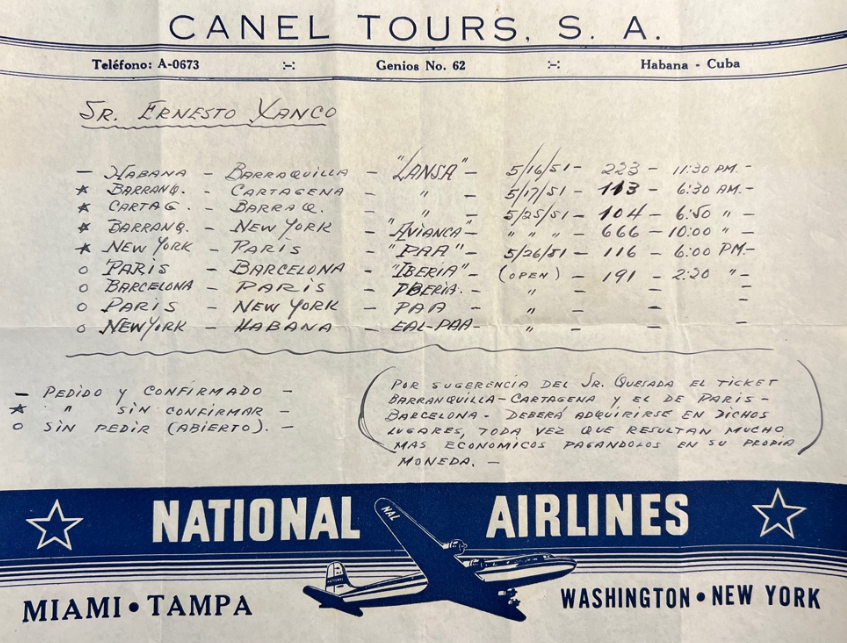 CANEL TOURS, S. A.
Teléfono: A-0673 :-: Genios No. 62 :-: Habana - Cuba
SR. ERNESTO YANCO
— HABANA - BARRAQUILLA - "LANSA" - 5/16/51 - 223 - 11:30 PM. -
* BARRANQ. - CARTAGENA - " - 5/17/51 - 113 - 6:30 AM. -
* CARTAG. - BARRAQ. - " - 5/25/51 - 104 - 6:50 " -
* BARRANQ. - NEW YORK - "AVIANCA" - " " " - 666 - 10:00 " -
* NEW YORK - PARIS - "PAA" - 5/26/51 - 116 - 6:00 PM. -
o PARIS - BARCELONA - "IBERIA" - (OPEN) - 191 - 2:20 " -
o BARCELONA - PARIS - IBERIA. - " - - -
o PARIS - NEW YORK - PAA - " - - -
o NEW YORK - HABANA - EAL-PAA - " - - -
— PEDIDO Y CONFIRMADO -
* " SIN CONFIRMAR -
o SIN PEDIR (ABIERTO). -
(POR SUGERENCIA DEL SR. QUESADA EL TICKET
BARRANQUILLA - CARTAGENA Y EL DE PARIS -
BARCELONA - DEBERÁ ADQUIRIRSE EN DICHOS
LUGARES, TODA VEZ QUE RESULTAN MUCHO
MAS ECONOMICOS PAGANDOLOS EN SU PROPIA
MONEDA. -)
NATIONAL AIRLINES
NAL
MIAMI • TAMPA WASHINGTON • NEW YORK